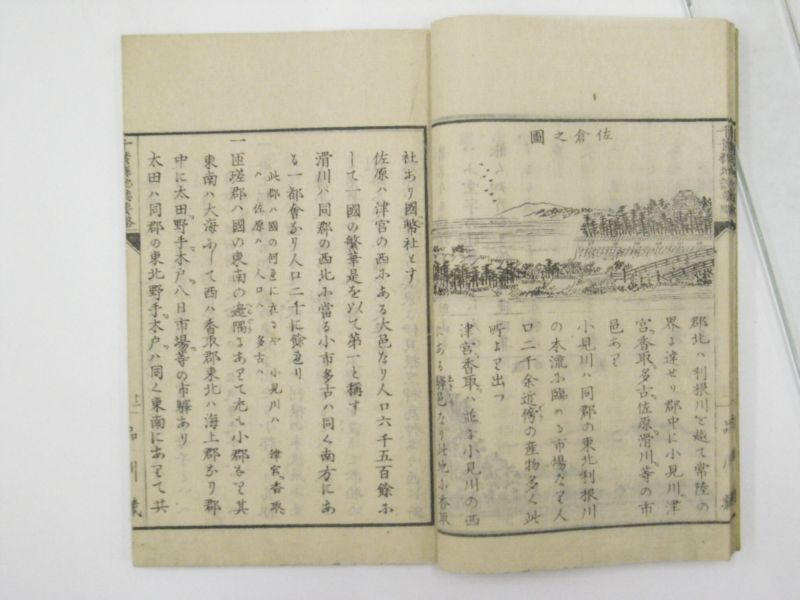 佐倉之圖
郡北ハ利根川を越て常陸の
界に達せり郡中に小見川津
宮香取多古佐原滑川等の市
邑あり
小見川ハ同郡の東北利根川
の本流に臨める市場なり人
口二千余道傍の産物多く此
所より出つ
津宮香取ハ並に小見川の西
にある驛邑なり此地に香取
社あり國幣社とす
佐原ハ津宮の西にある大邑なり人口六千五百餘に
して一國の繁華是を以て第一と稱す
滑川ハ同郡の西北に當る小市多古ハ同く南方にあ
る一都會なり人口二千に餘れり
此郡ハ國の何並に在るや 小見川ハ 津宮香取
ハ 佐原ハ 人口ハ 多古ハ
一匝瑳郡ハ國の東南の邊隅にありて尤も小郡なり其
東南ハ大海にして西ハ香取郡東北ハ海上郡なり郡
中に太田野手木戸八日市場等の市驛あり
太田ハ同郡の東北野手木戸ハ同く東南にありて其